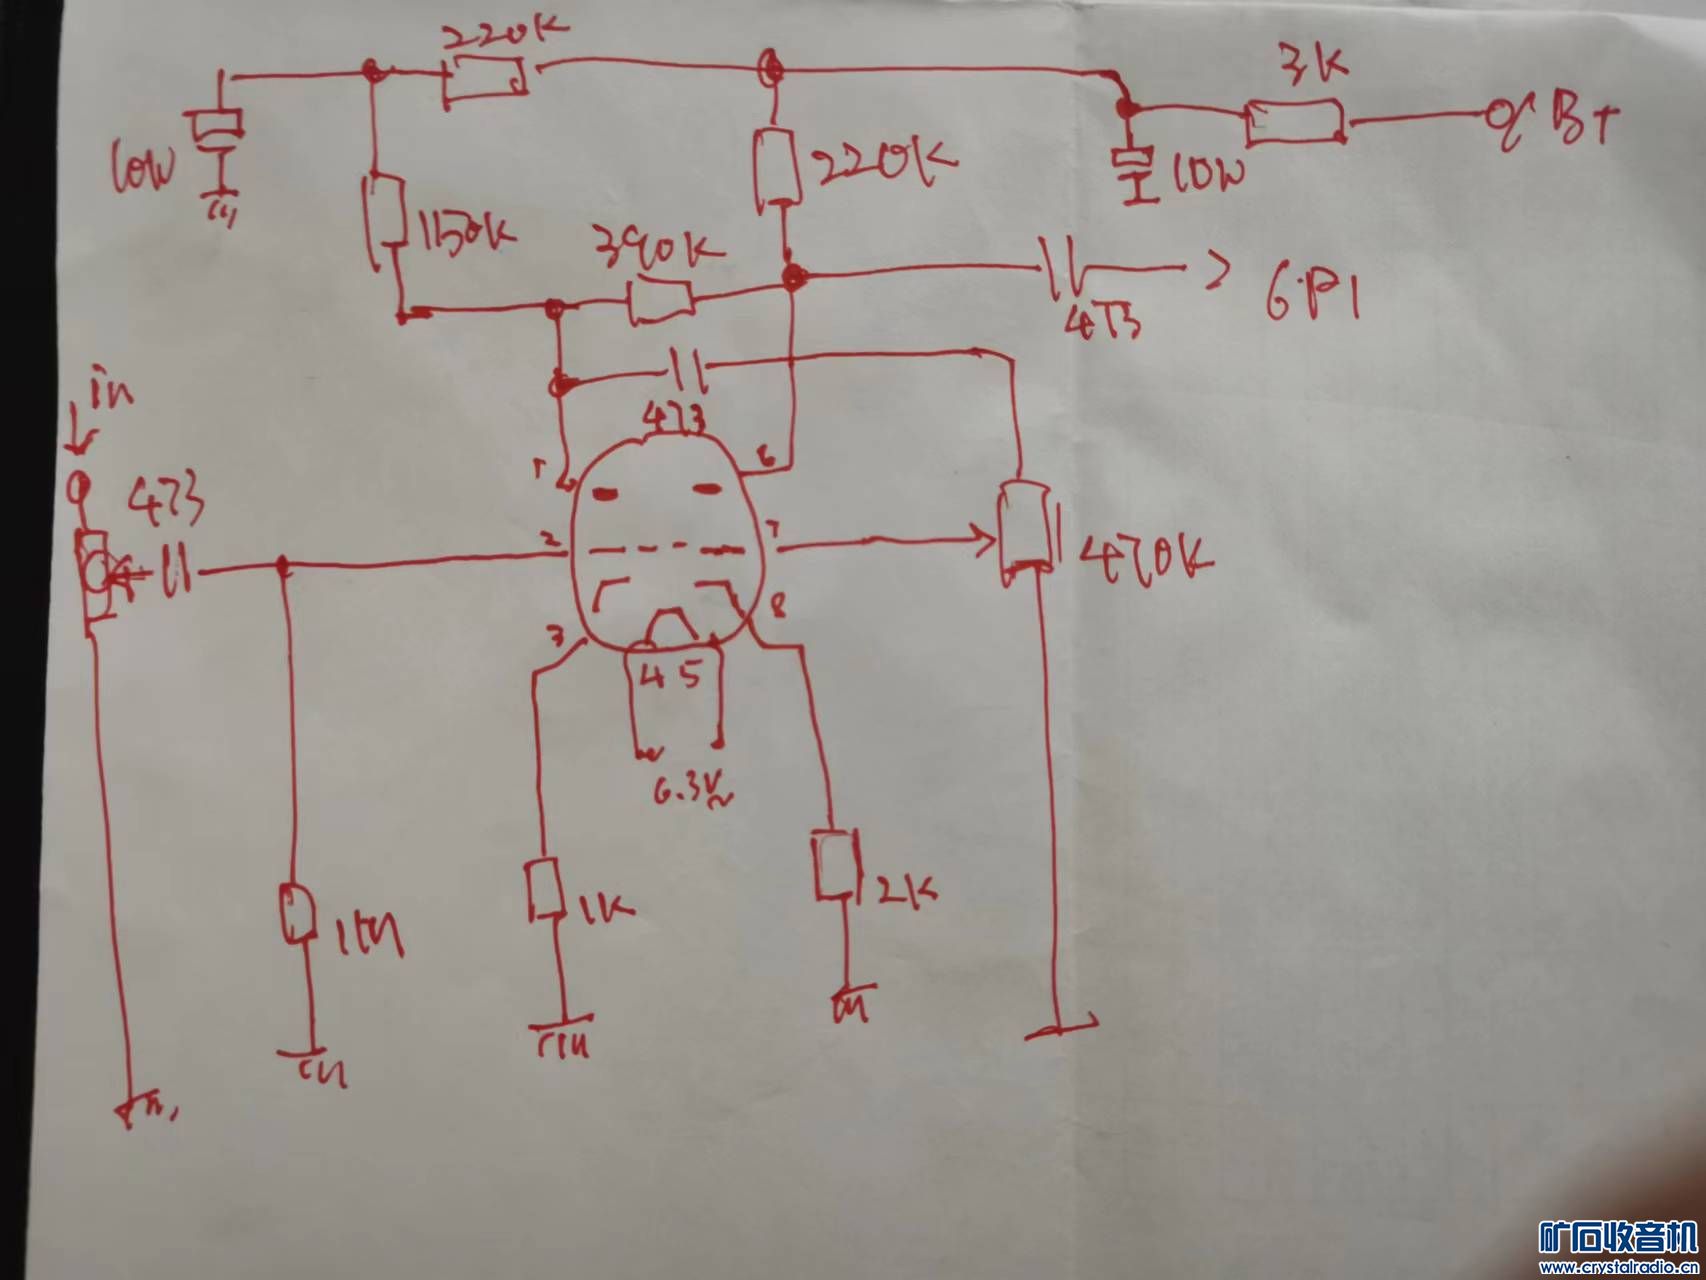 220K
3K
B+
10u
220K
10u
150K
390K
473
6P1
in
473
473
1
6
2
7
470K
3
8
4 5
6.3V~
1K
2K
矿石收音机
www.crystalradio.cn